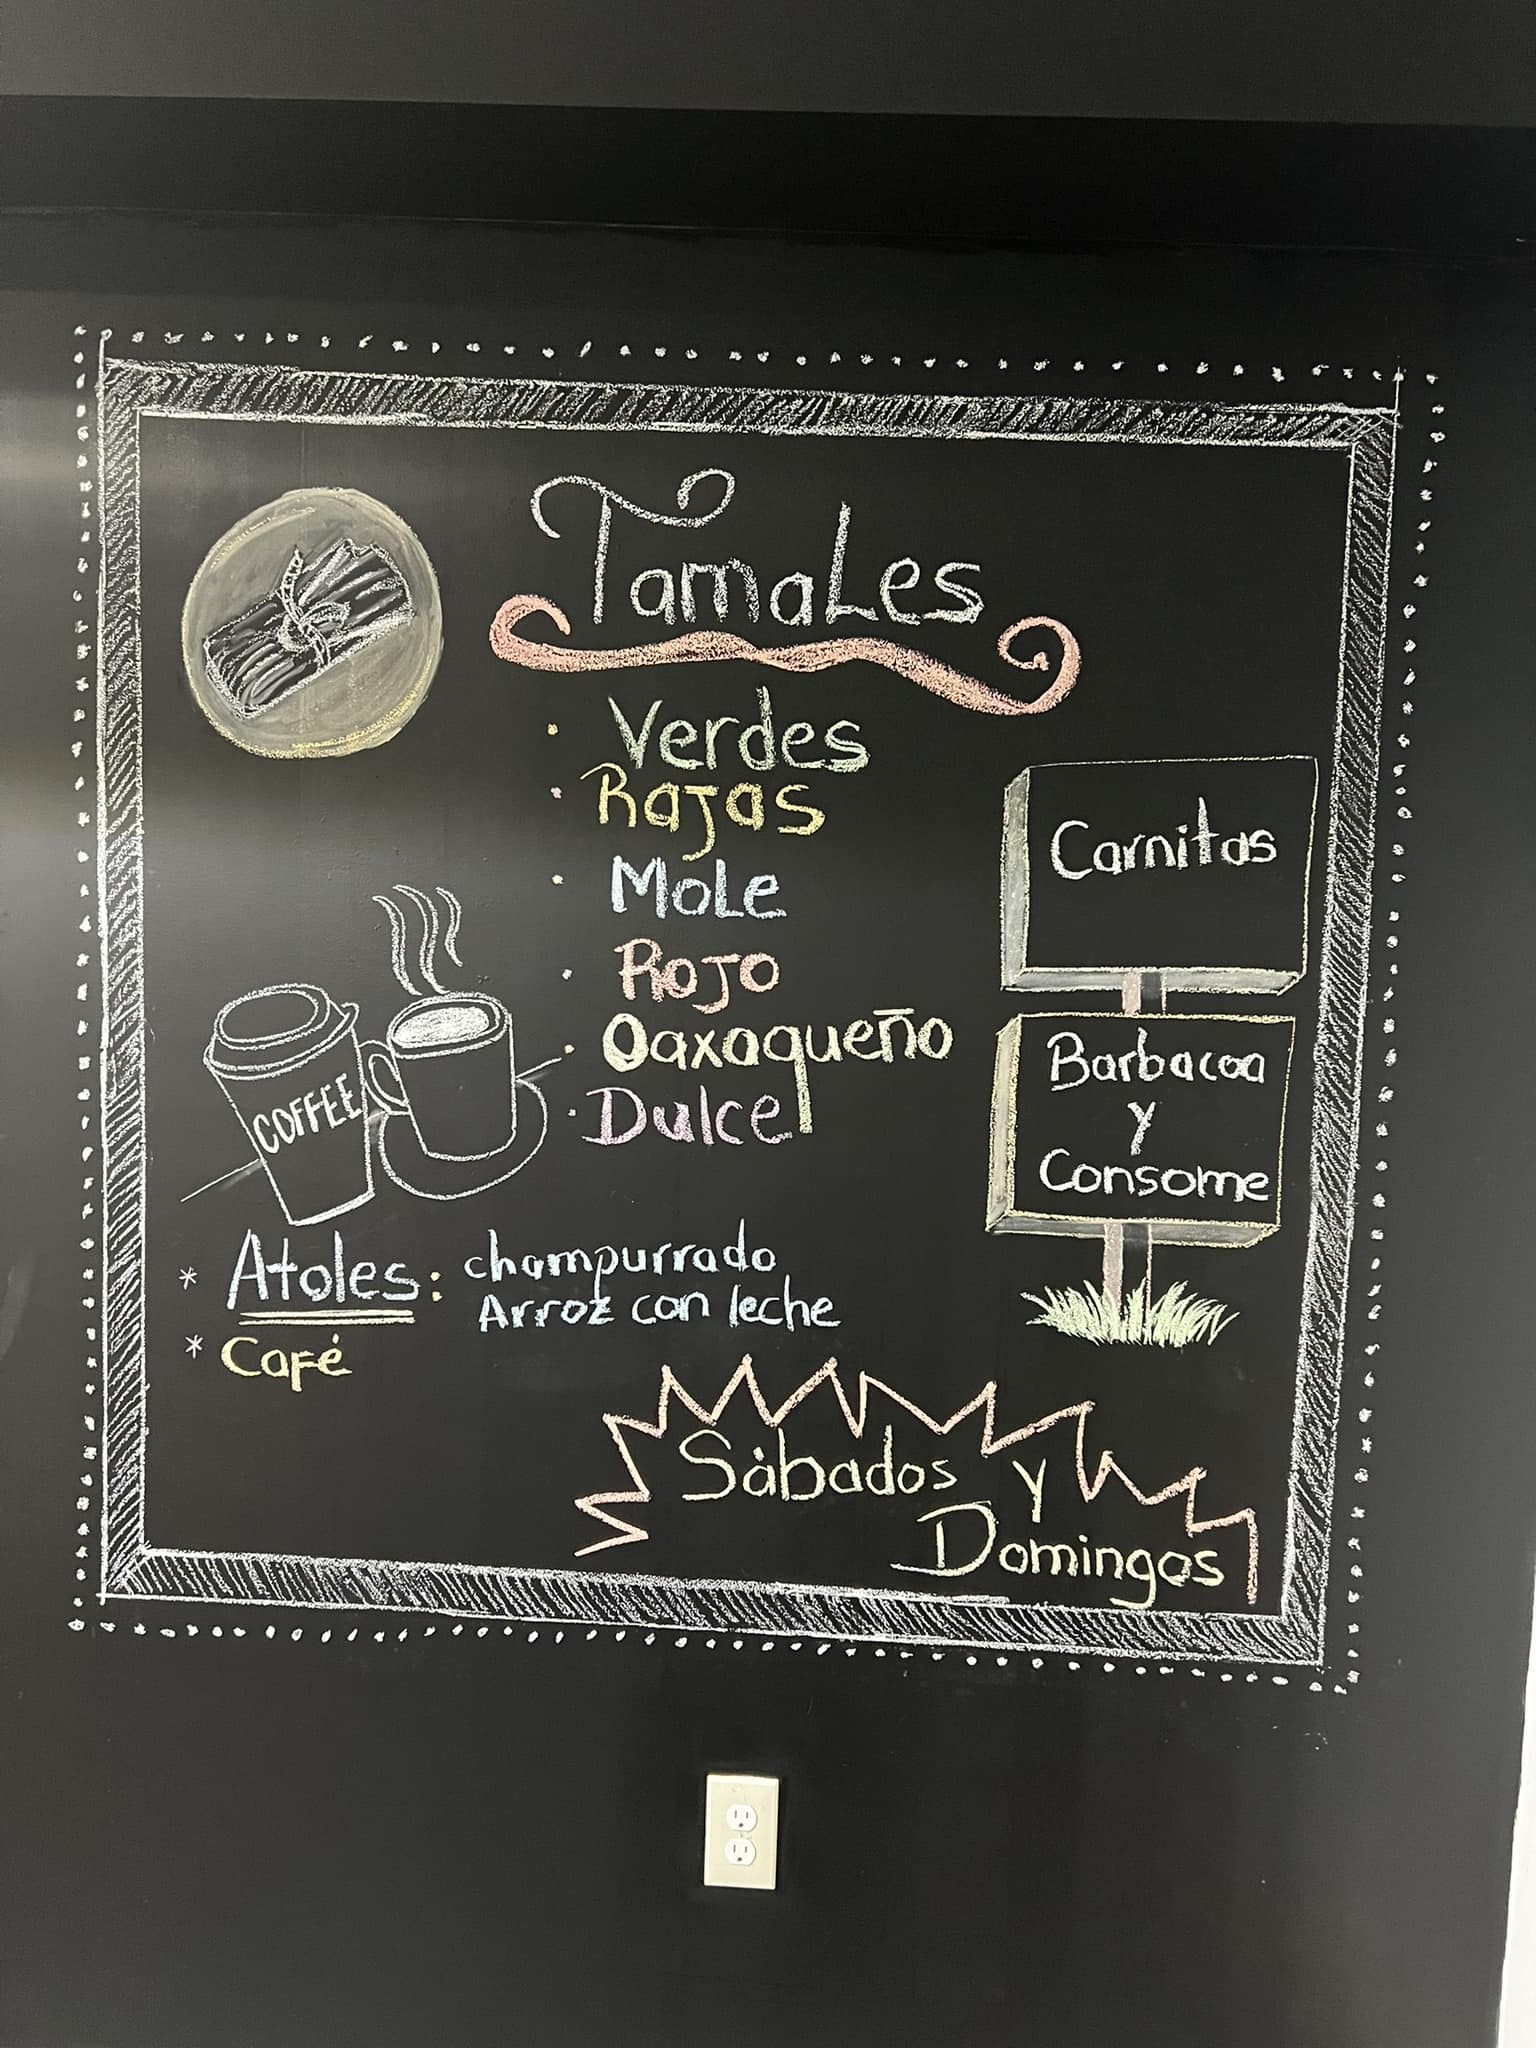 TamaLes
· Verdes
· Rajas
· MoLe
· Rojo
· Oaxaqueño
· Dulce
Carnitas
Barbacoa
y
Consome
COFFEE
* Atoles: champurrado
Arroz con leche
* Café
Sàbados y
Domingos